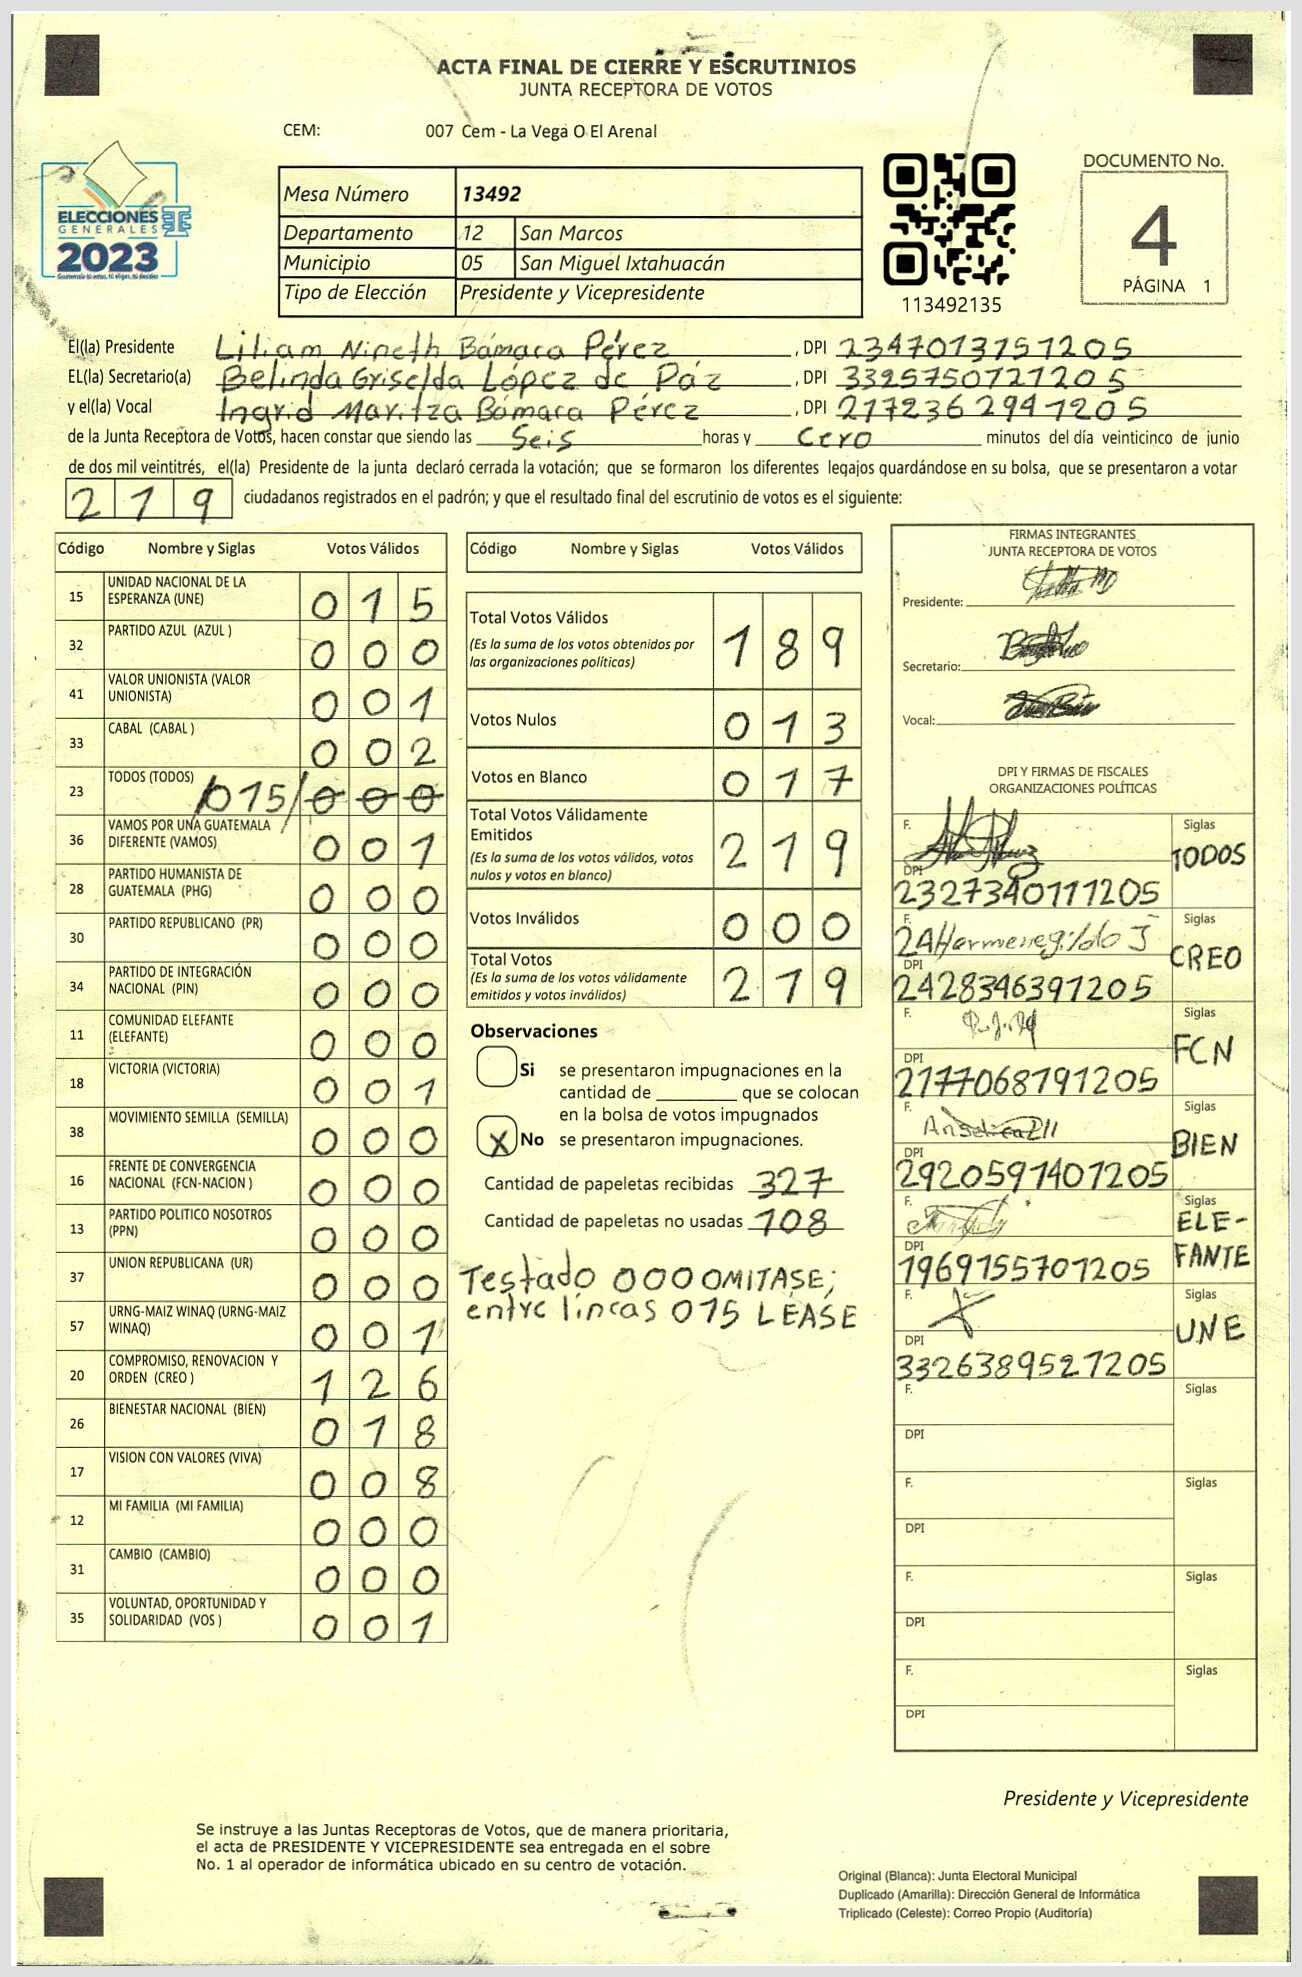 ACTA FINAL DE CIERRE Y ESCRUTINIOS
JUNTA RECEPTORA DE VOTOS
CEM: 007 Cem - La Vega O El Arenal
ELECCIONES
GENERALES
2023
Mesa Número 13492
Departamento 12 San Marcos
Municipio 05 San Miguel Ixtahuacán
Tipo de Elección Presidente y Vicepresidente
113492135
DOCUMENTO No.
4
PÁGINA 1
El(la) Presidente Liliam Nineth Bámaca Pérez, DPI 2347013751205
EL(la) Secretario(a) Belinda Griselda López de Páz, DPI 3325750721205
y el(la) Vocal Ingrid Maritza Bámaca Pérez, DPI 2172362941205
de la Junta Receptora de Votos, hacen constar que siendo las Seis horas y Cero minutos del día veinticinco de junio
de dos mil veintitrés, el(la) Presidente de la junta declaró cerrada la votación; que se formaron los diferentes legajos guardándose en su bolsa, que se presentaron a votar
219 ciudadanos registrados en el padrón; y que el resultado final del escrutinio de votos es el siguiente:
Código Nombre y Siglas Votos Válidos
15 UNIDAD NACIONAL DE LA ESPERANZA (UNE) 015
32 PARTIDO AZUL (AZUL ) 000
41 VALOR UNIONISTA (VALOR UNIONISTA) 001
33 CABAL (CABAL ) 002
23 TODOS (TODOS) /015/ 000
36 VAMOS POR UNA GUATEMALA DIFERENTE (VAMOS) 001
28 PARTIDO HUMANISTA DE GUATEMALA (PHG) 000
30 PARTIDO REPUBLICANO (PR) 000
34 PARTIDO DE INTEGRACIÓN NACIONAL (PIN) 000
11 COMUNIDAD ELEFANTE (ELEFANTE) 000
18 VICTORIA (VICTORIA) 001
38 MOVIMIENTO SEMILLA (SEMILLA) 000
16 FRENTE DE CONVERGENCIA NACIONAL (FCN-NACION ) 000
13 PARTIDO POLITICO NOSOTROS (PPN) 000
37 UNION REPUBLICANA (UR) 000
57 URNG-MAIZ WINAQ (URNG-MAIZ WINAQ) 001
20 COMPROMISO, RENOVACION Y ORDEN (CREO ) 126
26 BIENESTAR NACIONAL (BIEN) 018
17 VISION CON VALORES (VIVA) 008
12 MI FAMILIA (MI FAMILIA) 000
31 CAMBIO (CAMBIO) 000
35 VOLUNTAD, OPORTUNIDAD Y SOLIDARIDAD (VOS ) 001
Código Nombre y Siglas Votos Válidos
Total Votos Válidos 189
(Es la suma de los votos obtenidos por
las organizaciones políticas)
Votos Nulos 013
Votos en Blanco 017
Total Votos Válidamente
Emitidos 219
(Es la suma de los votos válidos, votos
nulos y votos en blanco)
Votos Inválidos 000
Total Votos 219
(Es la suma de los votos válidamente
emitidos y votos inválidos)
Observaciones
Si se presentaron impugnaciones en la
cantidad de ________ que se colocan
en la bolsa de votos impugnados
X No se presentaron impugnaciones.
Cantidad de papeletas recibidas 327
Cantidad de papeletas no usadas 108
Testado 000 OMITASE;
entre líneas 015 LEASE
FIRMAS INTEGRANTES
JUNTA RECEPTORA DE VOTOS
Presidente:
Secretario:
Vocal:
DPI Y FIRMAS DE FISCALES
ORGANIZACIONES POLÍTICAS
F. Siglas TODOS
DPI 2327340111205
F. Siglas CREO
DPI 2428346391205
F. Siglas FCN
DPI 2177068791205
F. Siglas BIEN
DPI 2920591401205
F. Siglas ELE-
FANTE
DPI 1969155701205
F. Siglas UNE
DPI 3326389521205
F. Siglas
DPI
F. Siglas
DPI
F. Siglas
DPI
F. Siglas
DPI
Presidente y Vicepresidente
Se instruye a las Juntas Receptoras de Votos, que de manera prioritaria,
el acta de PRESIDENTE Y VICEPRESIDENTE sea entregada en el sobre
No. 1 al operador de informática ubicado en su centro de votación.
Original (Blanca): Junta Electoral Municipal
Duplicado (Amarilla): Dirección General de Informática
Triplicado (Celeste): Correo Propio (Auditoría)